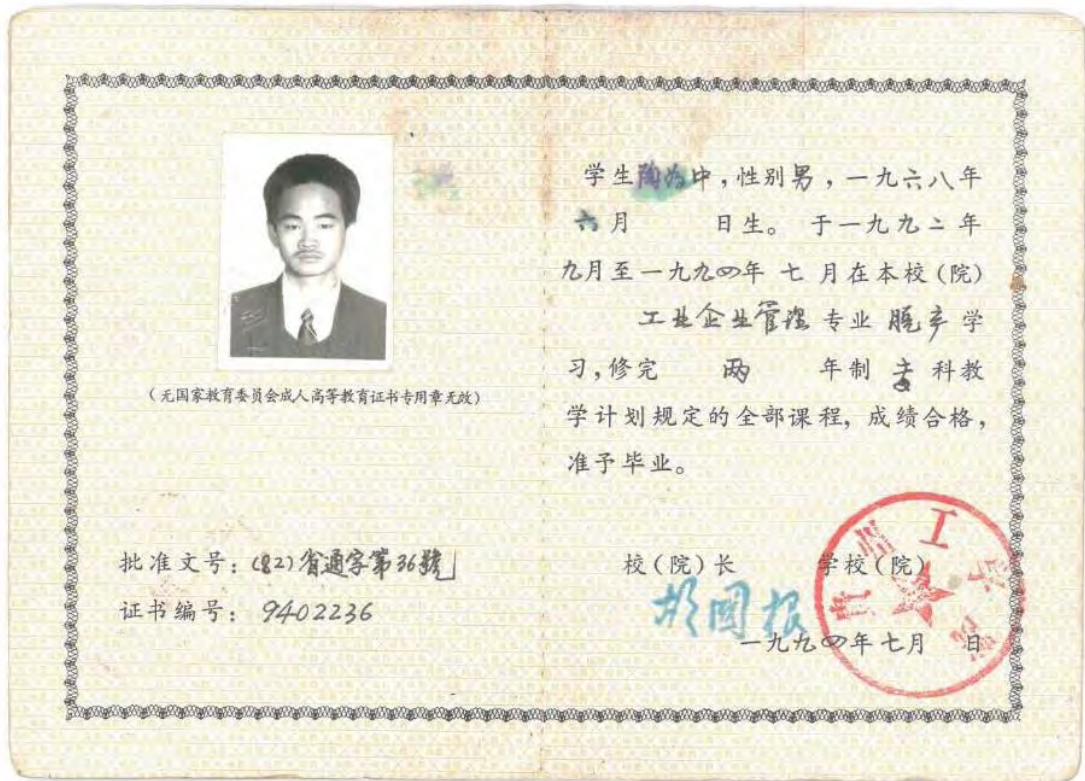 （无国家教育委员会成人高等教育证书专用章无效）
批准文号：(82)省通字第36號
证书编号：9402236
学生陶为中，性别男，一九六八年
六月 日生。于一九九二年
九月至一九九四年 七 月在本校（院）
工业企业管理 专业 脱产 学
习，修完 两 年制 专 科教
学计划规定的全部课程，成绩合格，
准予毕业。
校（院）长 学校（院）
国根
一九九四年七月 日
工学院